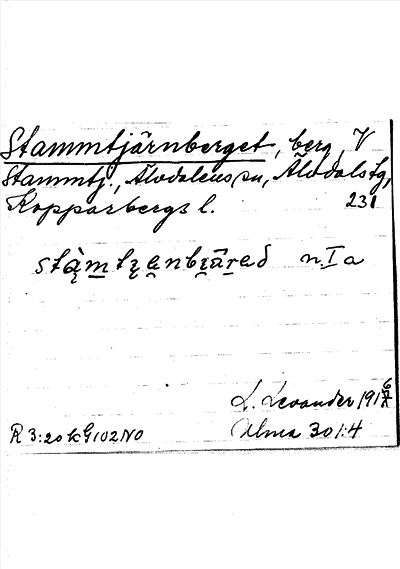 Stammtjärnberget, berg, V
Stammtj., Älvdalens sn, Älvdals tg,
Kopparbergs l. 231
n. I a
L. Levander 191
R 3:20 k G 102 NO Ulma 301:4